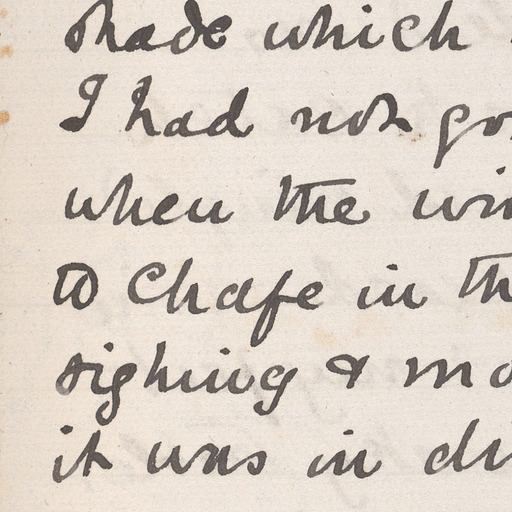 shade which
I had not go
when the win
to chafe in th
sighing & mo
it was in di